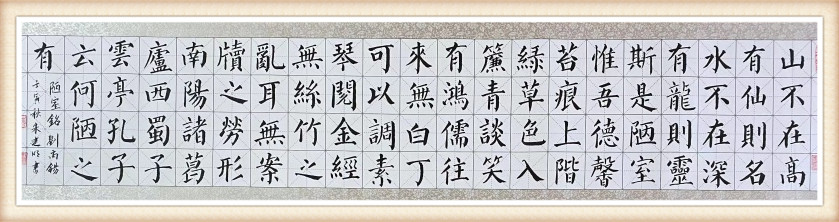 山不在高
有仙則名
水不在深
有龍則靈
斯是陋室
惟吾德馨
苔痕上階
緑草色入
簾青談笑
有鴻儒往
來無白丁
可以調素
琴閱金經
無絲竹之
亂耳無案
牘之勞形
南陽諸葛
廬西蜀子
雲亭孔子
云何陋之
有
陋室銘 劉禹錫
壬寅秋朱建明書